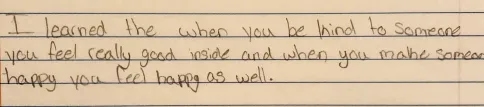 I learned the when you be kind to someone
you feel really good inside and when you make someone
happy you feel happy as well.